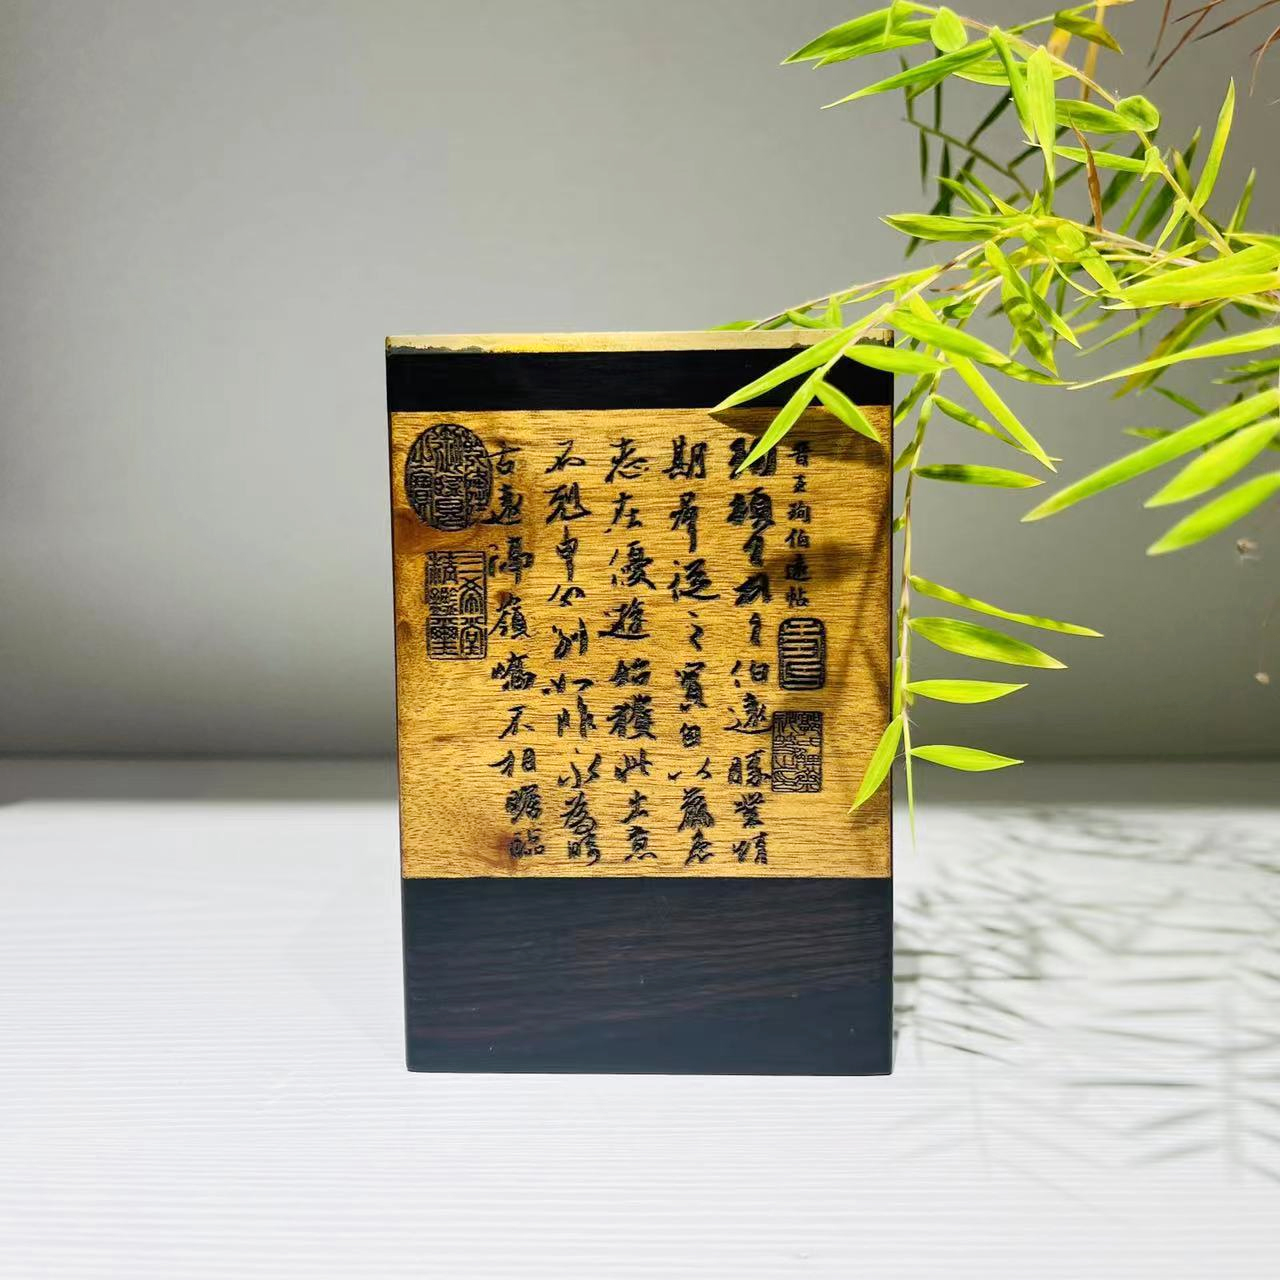 晉王珣伯遠帖
珣頓首頓首伯遠勝業情
期羣從之寶自以羸患
志在優遊始獲此出意
不剋申分別如昨永為疇
古遠隔嶺嶠不相瞻臨
三希堂精鑑璽